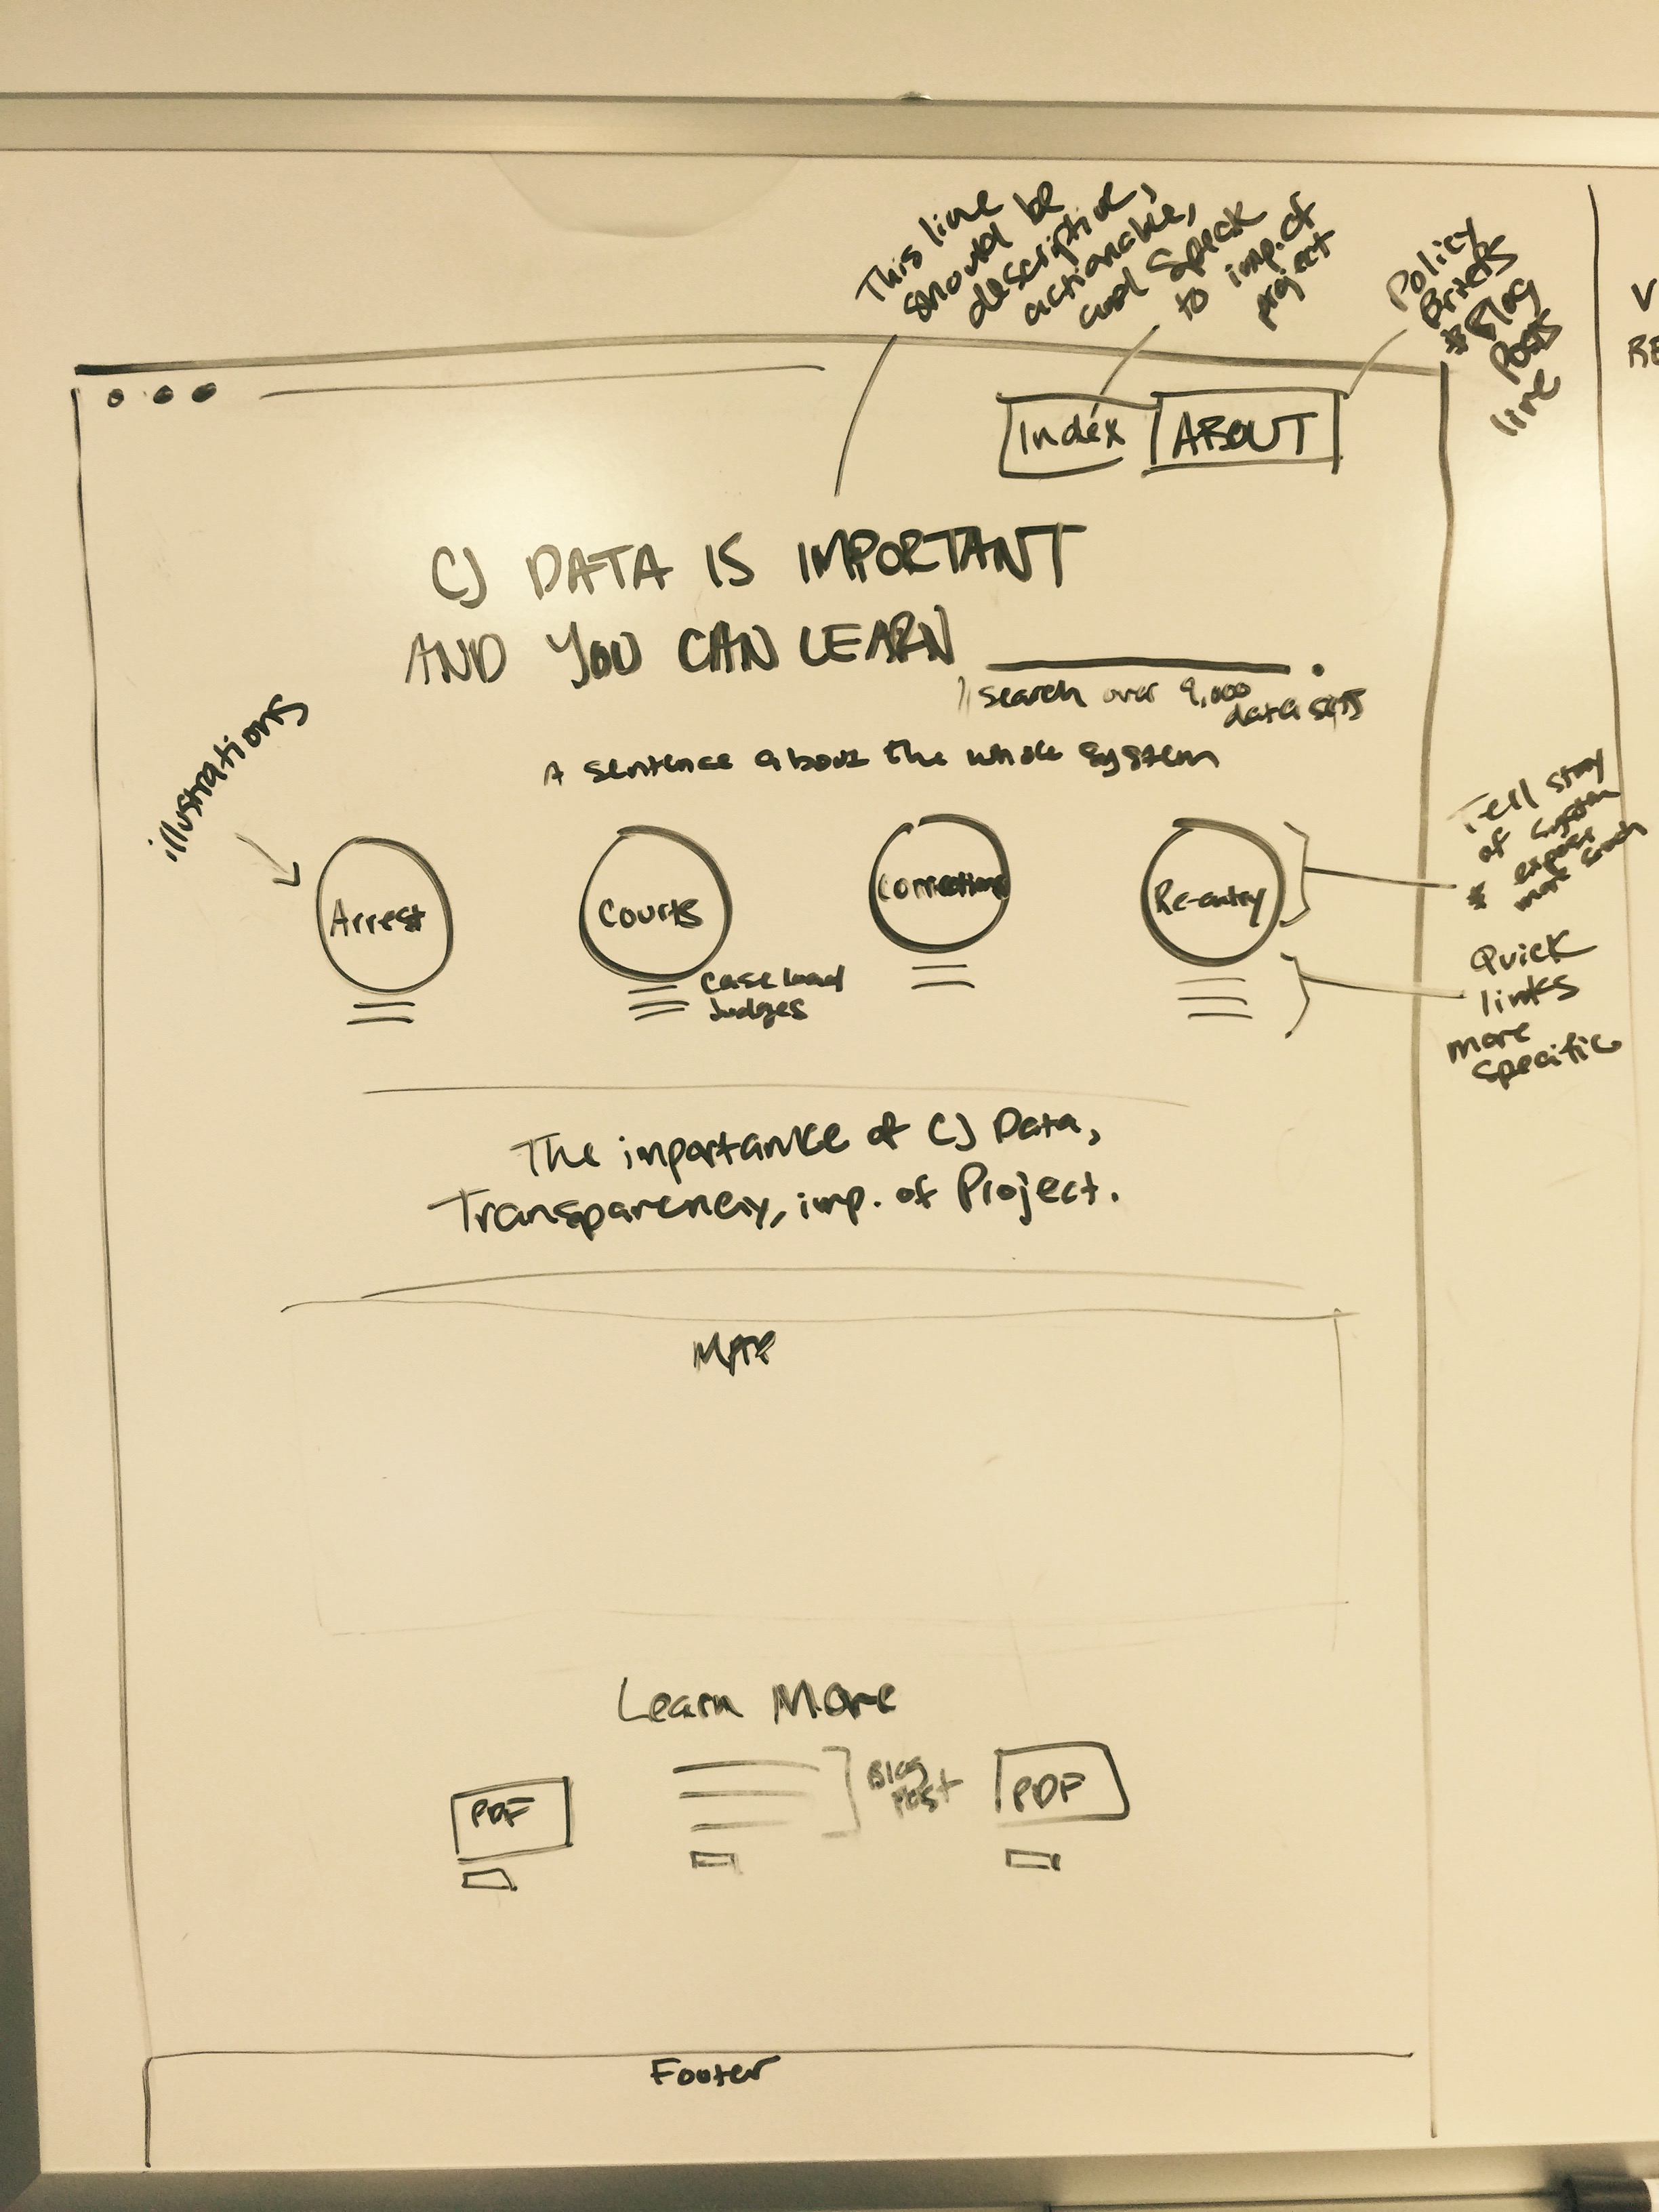 This line
should be
descriptive,
actionable,
and speak
to imp. of
project
Policy
Briefs
Blog
Posts
line
V
RE
Index
ABOUT
CJ DATA IS IMPORTANT
AND YOU CAN LEARN ________.
search over 9,000
data sets
A sentence about the whole system
illustrations
Arrest
Courts
Corrections
Re-entry
case load
Judges
Tell story
of system
* expose
more
Quick
links
more
specific
The importance of CJ Data,
Transparency, imp. of Project.
MAP
Learn More
PDF
Blog
Post
PDF
Footer